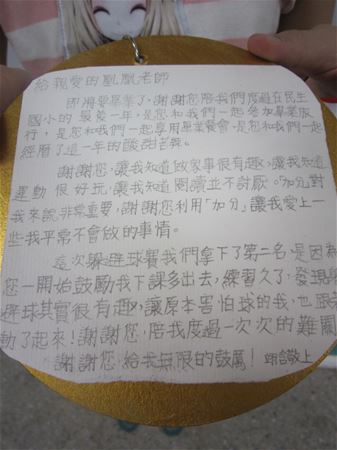 給親愛的凱凰老師
即將要畢業了，謝謝您陪我們度過在民生
國小的最後一年，是您和我們一起參加畢業旅
行，是您和我們一起享用畢業餐會，是您和我們一起
經曆了這一年的酸甜苦辣。
謝謝您，讓我知道做家事很有趣，讓我知道
運動很好玩，讓我知道閱讀並不討厭。「加分」對
我來說，非常重要，謝謝您利用「加分」讓我愛上一
些我平常不會做的事情。
這次躲避球賽我們拿下了第二名，是因為
您一開始鼓勵我下課多出去，練習久了，發現躲
避球其實很有趣，讓原本害怕球的我，也跟著
動了起來！謝謝您，陪我度過一次次的難關
謝謝您給我無限的鼓厲！
敬上